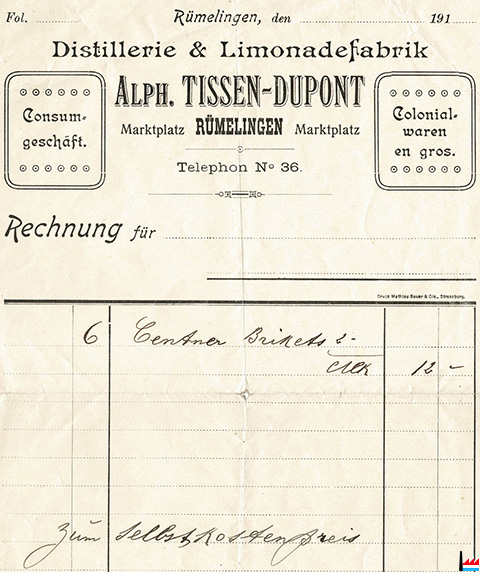 Fol.
Rümelingen, den 191
Distillerie & Limonadefabrik
ALPH. TISSEN-DUPONT
Consum-
geschäft.
Colonial-
waren
en gros.
Marktplatz RÜMELINGEN Marktplatz
Telephon No 36.
Rechnung für
Druck Mathieu Bauer & Cie., Strassburg.
6 Centner Brikets 2-
Mk 12 -
Zum Selbstkostenpreis